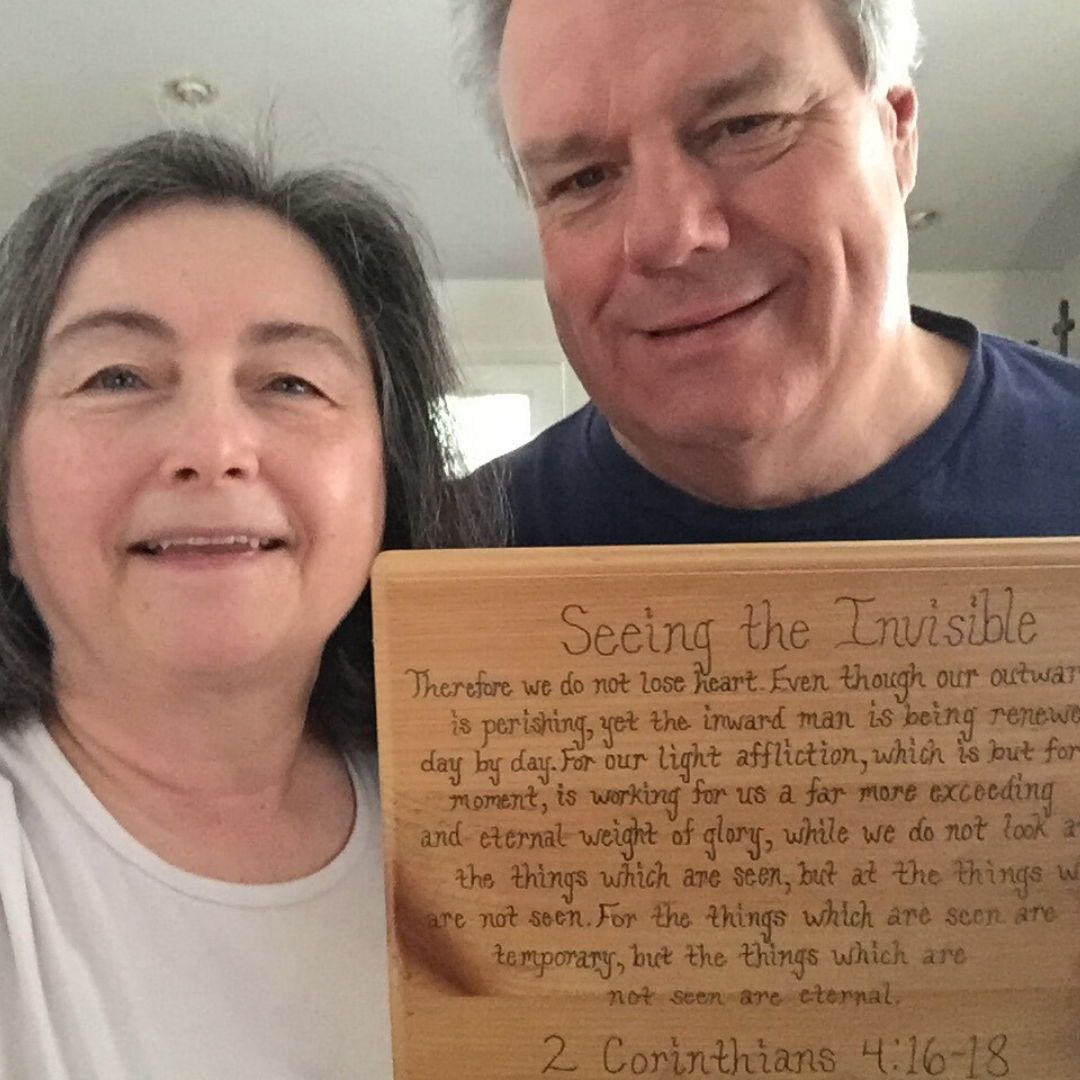 Seeing the Invisible
Therefore we do not lose heart. Even though our outwar
is perishing, yet the inward man is being renewe
day by day. For our light affliction, which is but for
moment, is working for us a far more exceeding
and eternal weight of glory, while we do not look a
the things which are seen, but at the things w
are not seen. For the things which are seen are
temporary, but the things which are
not seen are eternal.
2 Corinthians 4:16-18